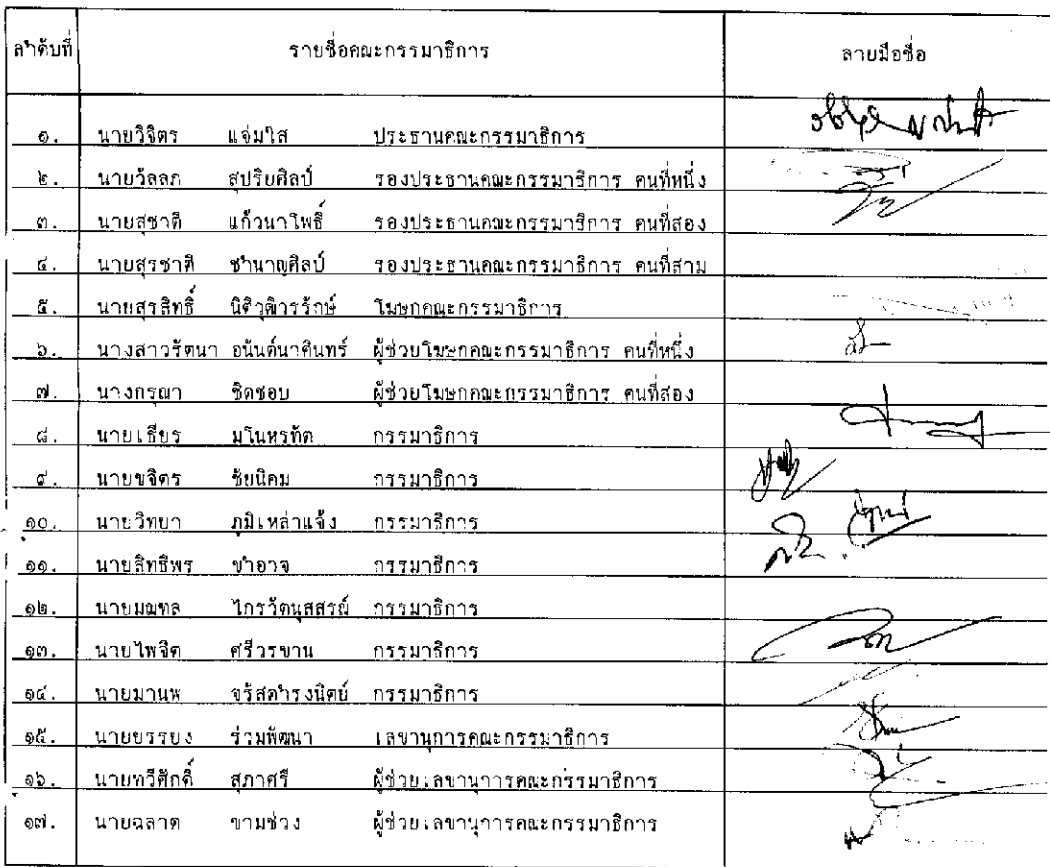 ลำดับที่ รายชื่อคณะกรรมาธิการ ลายมือชื่อ
๑. นายวิจิตร แจ่มใส ประธานคณะกรรมาธิการ
๒. นายวัลลภ สุปริยศิลป์ รองประธานคณะกรรมาธิการ คนที่หนึ่ง
๓. นายสุชาติ แก้วนาโพธิ์ รองประธานคณะกรรมาธิการ คนที่สอง
๔. นายสุรชาติ ชำนาญศิลป์ รองประธานคณะกรรมาธิการ คนที่สาม
๕. นายสุรสิทธิ์ นิติวุฒิวรรักษ์ โฆษกคณะกรรมาธิการ
๖. นางสาวรัตนา อนันต์นาคินทร์ ผู้ช่วยโฆษกคณะกรรมาธิการ คนที่หนึ่ง
๗. นางกรุณา ชิดชอบ ผู้ช่วยโฆษกคณะกรรมาธิการ คนที่สอง
๘. นายเธียร มโนหรทัต กรรมาธิการ
๙. นายขจิตร ชัยนิคม กรรมาธิการ
๑๐. นายวิทยา ภูมิเหล่าแจ้ง กรรมาธิการ
๑๑. นายสิทธิพร ขำอาจ กรรมาธิการ
๑๒. นายมณฑล ไกรวัตนุสสรณ์ กรรมาธิการ
๑๓. นายไพจิต ศรีวรขาน กรรมาธิการ
๑๔. นายมานพ จรัสดำรงนิตย์ กรรมาธิการ
๑๕. นายบรรยง ร่วมพัฒนา เลขานุการคณะกรรมาธิการ
๑๖. นายทวีศักดิ์ สุภาศรี ผู้ช่วยเลขานุการคณะกรรมาธิการ
๑๗. นายฉลาด ขามช่วง ผู้ช่วยเลขานุการคณะกรรมาธิการ